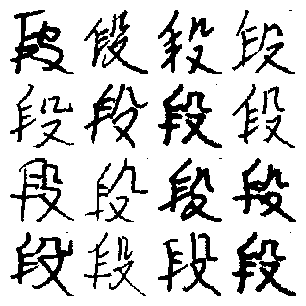 段段段段
段段段段
段段段段
段段段段